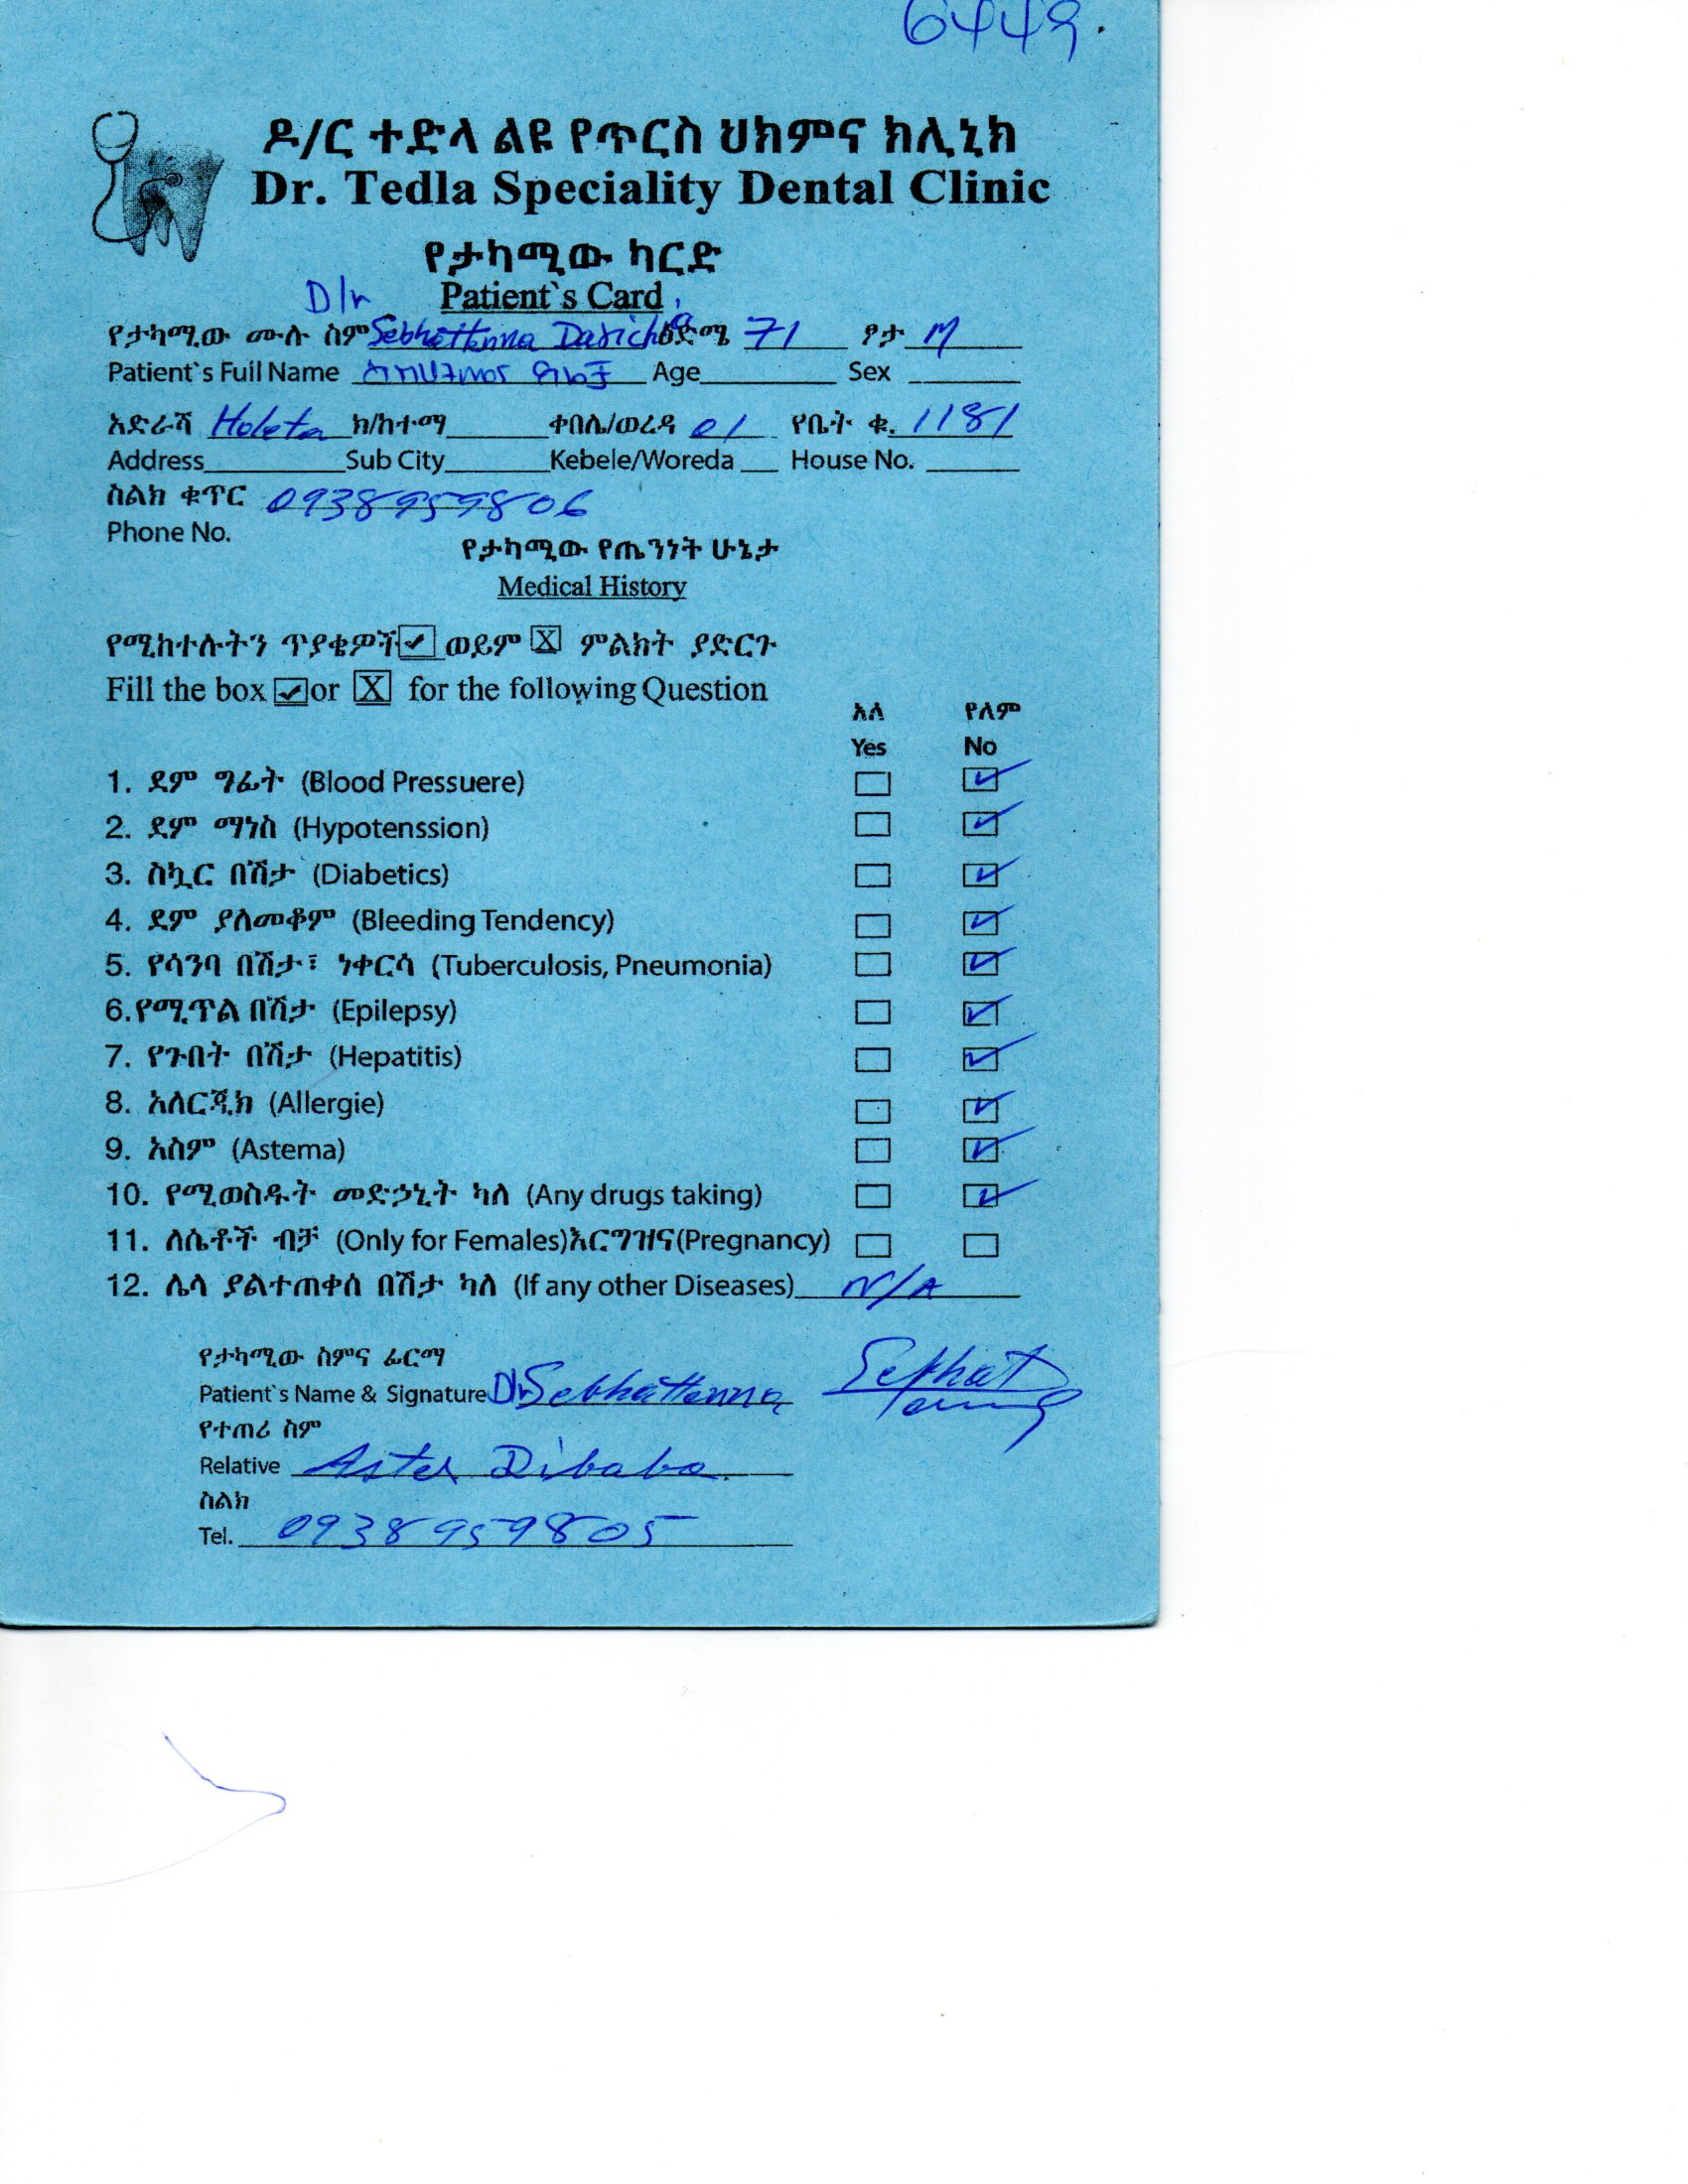 6449.
ዶ/ር ተድላ ልዩ የጥርስ ህክምና ክሊኒክ
Dr. Tedla Speciality Dental Clinic
የታካሚው ካርድ
D/r Patient`s Card
የታካሚው ሙሉ ስም Sebhattenna Daricha ዕድሜ 71 ፆታ M
Patient`s Full Name Age Sex
አድራሻ Holeta ክ/ከተማ ቀበሌ/ወረዳ 01 የቤት ቁ. 1181
Address Sub City Kebele/Woreda House No.
ስልክ ቁጥር 0938959806
Phone No.
የታካሚው የጤንነት ሁኔታ
Medical History
የሚከተሉትን ጥያቄዎች ✓ ወይም X ምልክት ያድርጉ
Fill the box ✓ or X for the following Question
አለ የለም
Yes No
1. ደም ግፊት (Blood Pressuere) ☐ ☑
2. ደም ማነስ (Hypotenssion) ☐ ☑
3. ስኳር በሽታ (Diabetics) ☐ ☑
4. ደም ያለመቆም (Bleeding Tendency) ☐ ☑
5. የሳንባ በሽታ፣ ነቀርሳ (Tuberculosis, Pneumonia) ☐ ☑
6.የሚጥል በሽታ (Epilepsy) ☐ ☑
7. የጉበት በሽታ (Hepatitis) ☐ ☑
8. አለርጂክ (Allergie) ☐ ☑
9. አስም (Astema) ☐ ☑
10. የሚወስዱት መድኃኒት ካለ (Any drugs taking) ☐ ☑
11. ለሴቶች ብቻ (Only for Females)እርግዝና(Pregnancy) ☐ ☐
12. ሌላ ያልተጠቀሰ በሽታ ካለ (If any other Diseases) N/A
የታካሚው ስምና ፊርማ
Patient`s Name & Signature D/r Sebhattenna
የተጠሪ ስም
Relative Aster Dibaba.
ስልክ
Tel. 0938959805